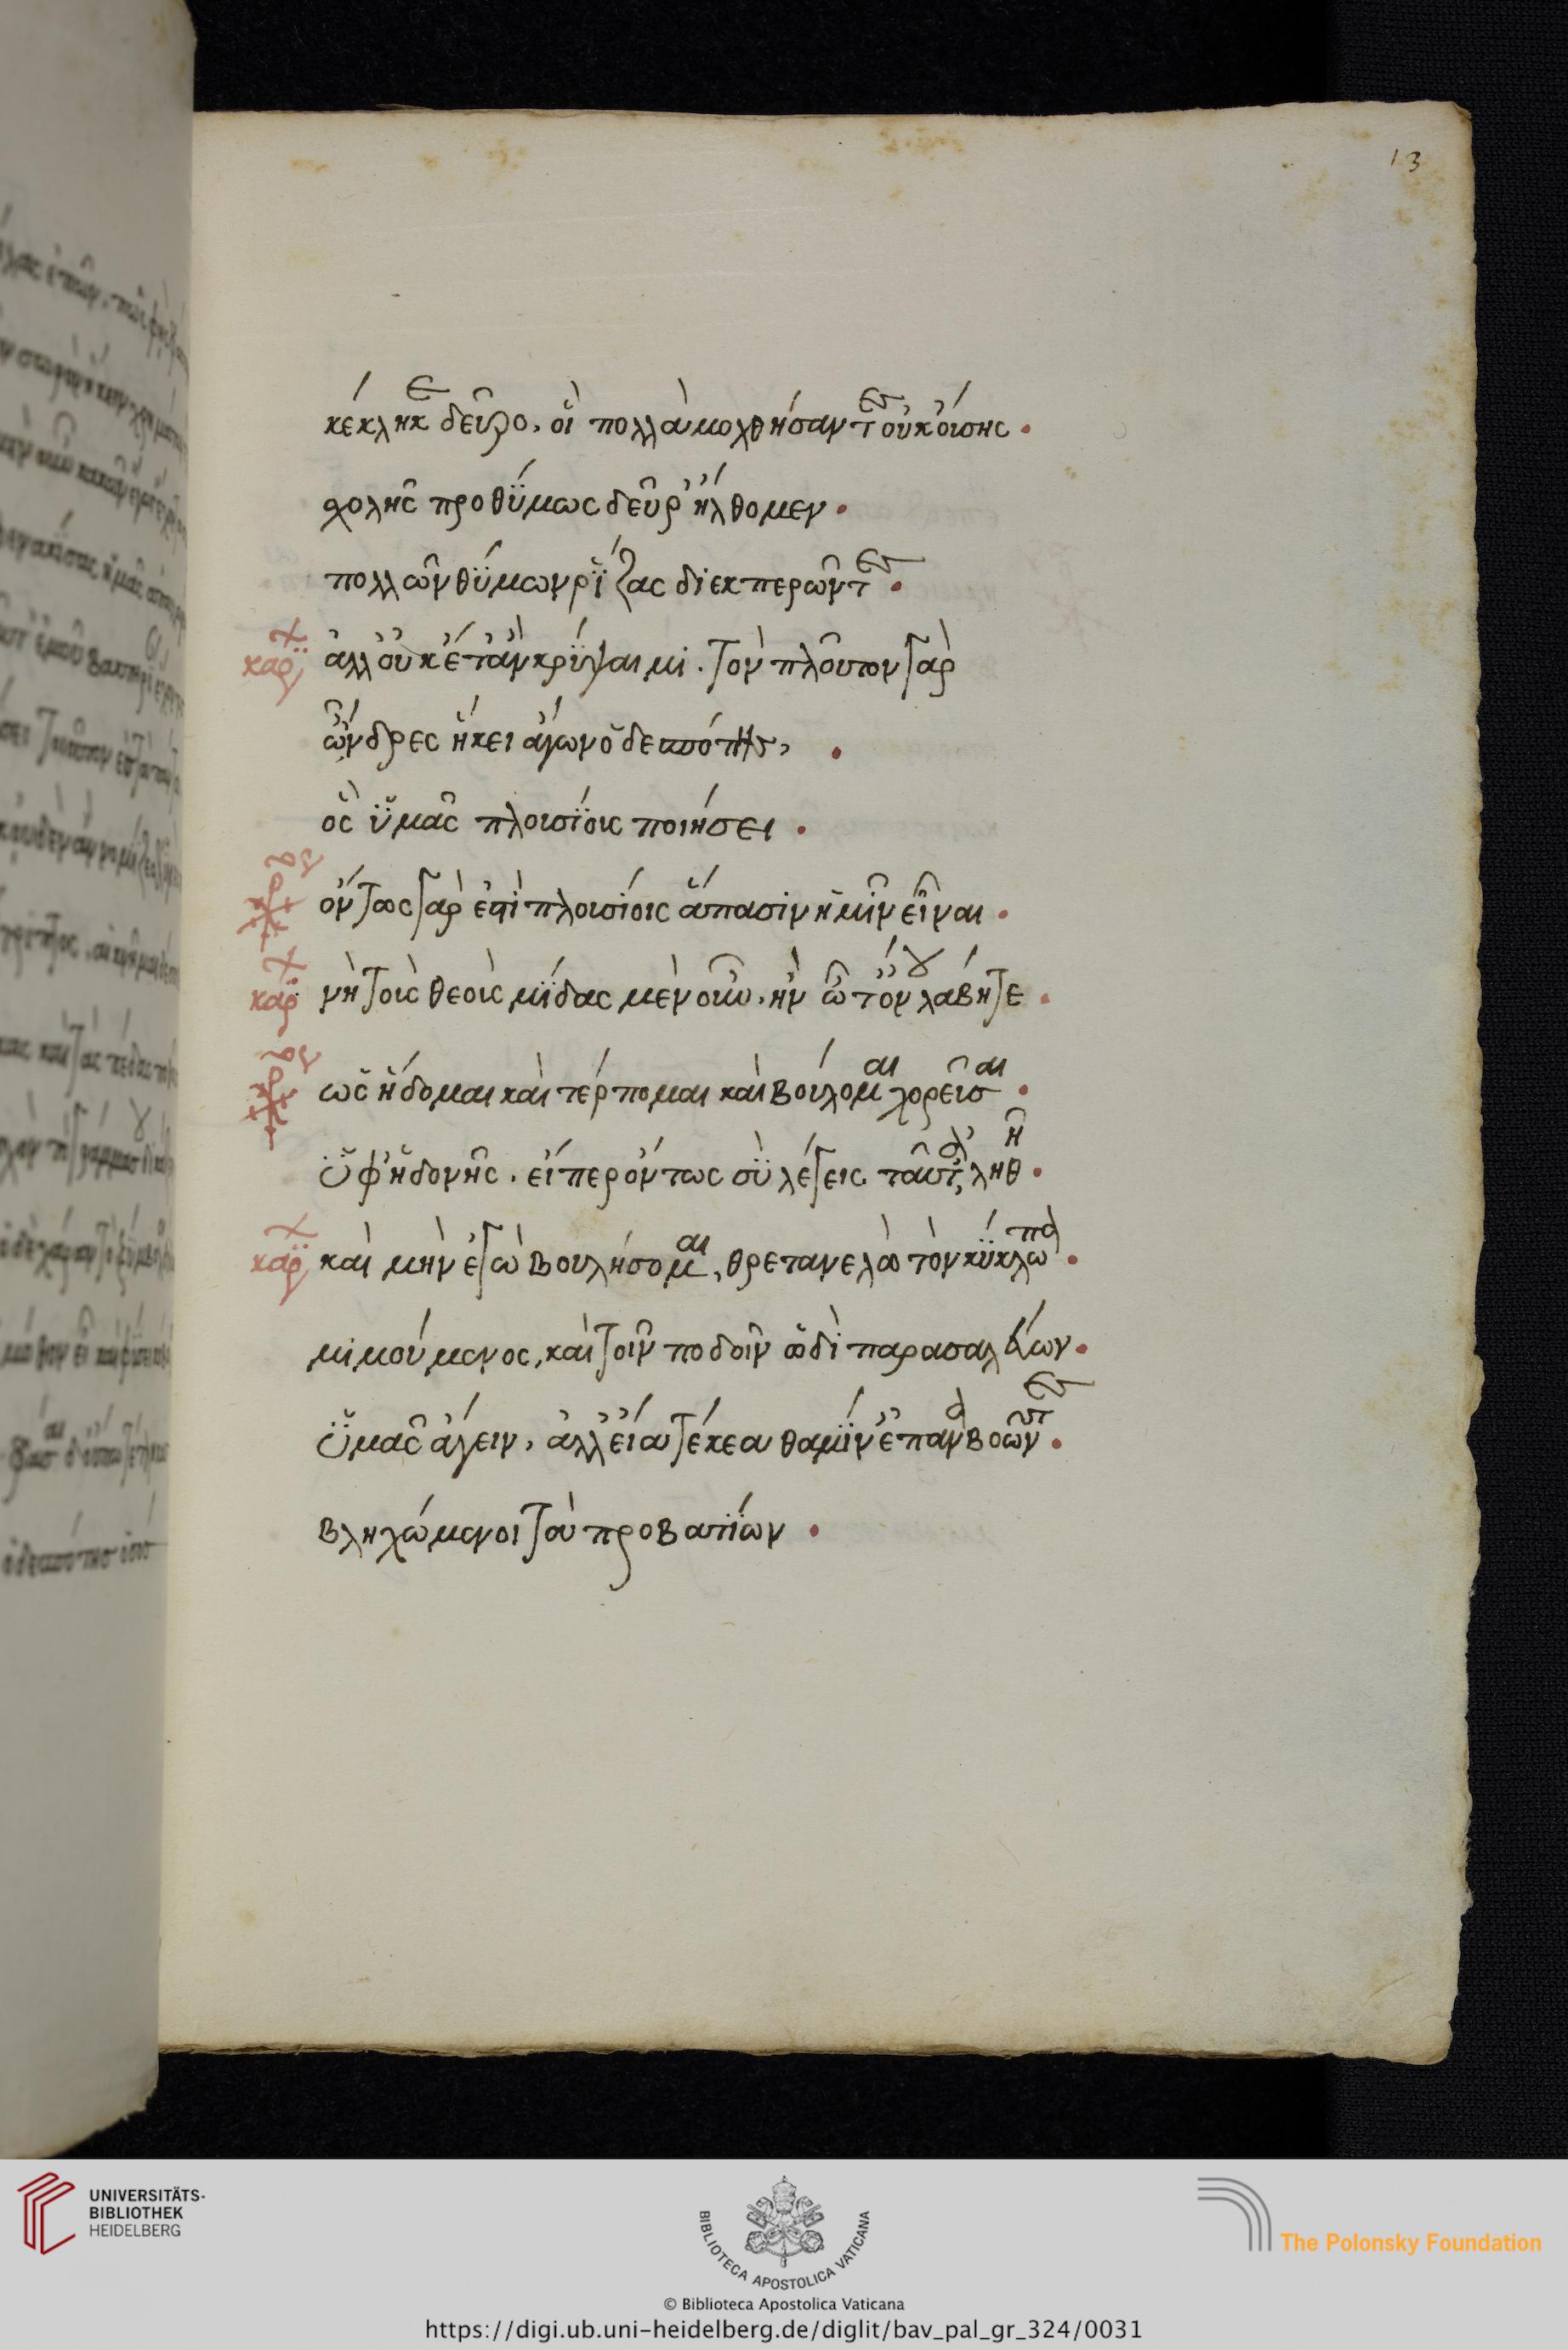 13
κέκληκεν δεῦρο, οἱ πολλὰ μοχθήσαντες οὐκ οὔσης
χολῆς προθύμως δεῦρ' ἤλθομεν.
πολλῶν θύμων ῥίζας διεκπερῶντες.
καρ χ ἀλλ' οὐκέτ' ἂν κρύψαιμι. τὸν πλοῦτον γὰρ
ὦνδρες ἥκει ἄγων ὁ δεσπότης,
ὃς ὑμᾶς πλουσίους ποιήσει.
χορ ὄντως γὰρ ἐστὶ πλουσίοις ἅπασιν ἡμῖν εἶναι.
καρ χ νὴ τοὺς θεοὺς μίδας μὲν οὖν, ἢν ὦτ' ὄνου λάβητε.
χορ ὡς ἥδομαι καὶ τέρπομαι καὶ βούλομαι χορεῦσαι.
ὑφ' ἡδονῆς. εἴπερ ὄντως σὺ λέγεις ταῦτ' ἀληθῆ.
καρ χ καὶ μὴν ἐγὼ βουλήσομαι, θρετανελὼ τὸν κύκλωπα.
μιμούμενος, καὶ τοῖν ποδοῖν ὡδὶ παρασαλεύων.
ὑμᾶς ἄγειν, ἀλλ' εἶα τέκεα θαμίν' ἐπαναβοῶντες.
βληχώμενοι τὰ προβατίων.
UNIVERSITÄTS-
BIBLIOTHEK
HEIDELBERG
BIBLIOTECA APOSTOLICA VATICANA
The Polonsky Foundation
© Biblioteca Apostolica Vaticana
https://digi.ub.uni-heidelberg.de/diglit/bav_pal_gr_324/0031